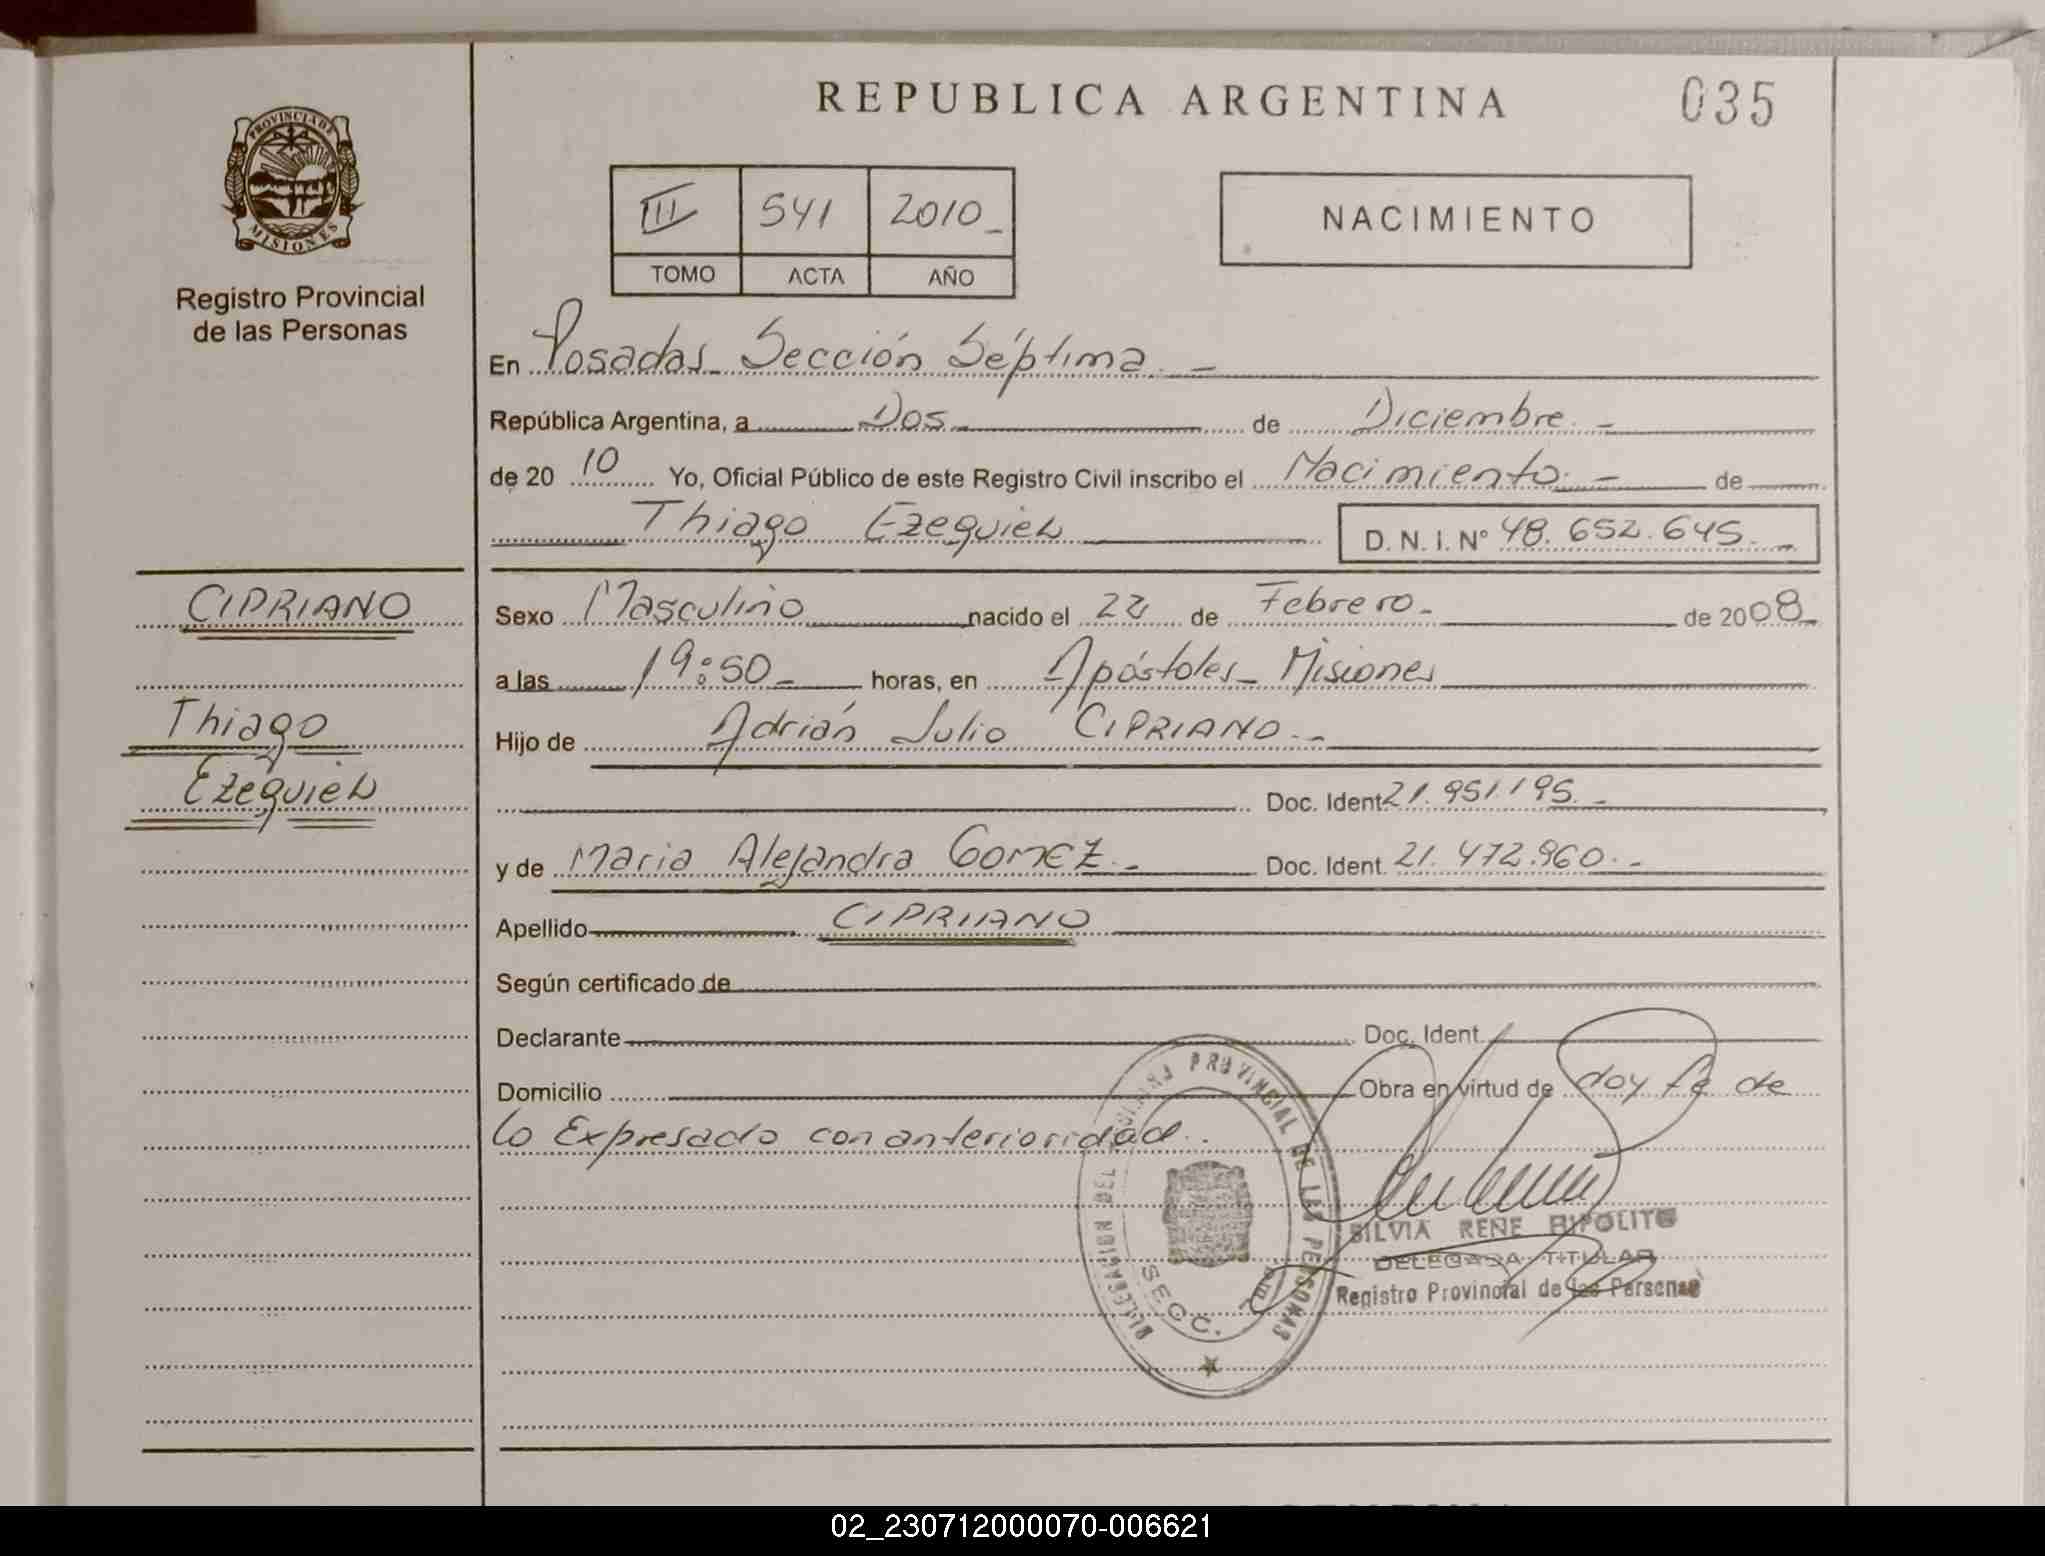 REPUBLICA ARGENTINA
035
PROVINCIA DE
MISIONES
Registro Provincial
de las Personas
III 541 2010
TOMO ACTA AÑO
NACIMIENTO
En Posadas Sección Séptima
República Argentina, a Dos de Diciembre
de 20 10 Yo, Oficial Público de este Registro Civil inscribo el Nacimiento de
Thiago Ezequiel D. N. I. Nº 48.652.645
CIPRIANO
Thiago
Ezequiel
Sexo Masculino nacido el 22 de Febrero de 2008
a las 19:50 horas, en Apóstoles Misiones
Hijo de Adrián Julio CIPRIANO
Doc. Ident 21.951.195
y de Maria Alejandra GOMEZ Doc. Ident. 21.472.960
Apellido CIPRIANO
Según certificado de
Declarante Doc. Ident.
Domicilio Obra en virtud de doy fe de
lo Expresado con anterioridad.
DELEGACION DEL PROVINCIAL DE LAS PERSONAS
SECC.
SILVIA RENE HIPOLITO
DELEGADA TITULAR
Registro Provincial de las Personas
02_230712000070-006621